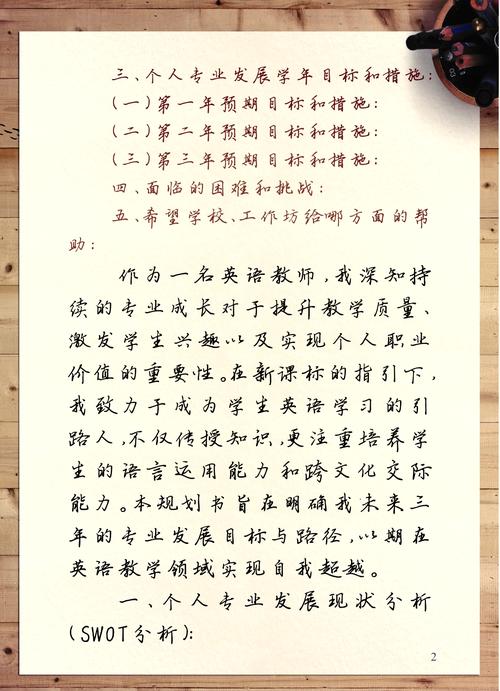 三、个人专业发展学年目标和措施:
(一)第一年预期目标和措施:
(二)第二年预期目标和措施:
(三)第三年预期目标和措施:
四、面临的困难和挑战:
五、希望学校、工作坊给哪方面的帮
助:
作为一名英语教师,我深知持
续的专业成长对于提升教学质量、
激发学生兴趣以及实现个人职业
价值的重要性。在新课标的指引下,
我致力于成为学生英语学习的引
路人,不仅传授知识,更注重培养学
生的语言运用能力和跨文化交际
能力。本规划书旨在明确我未来三
年的专业发展目标与路径,以期在
英语教学领域实现自我超越。
一、个人专业发展现状分析
(SWOT分析):
2